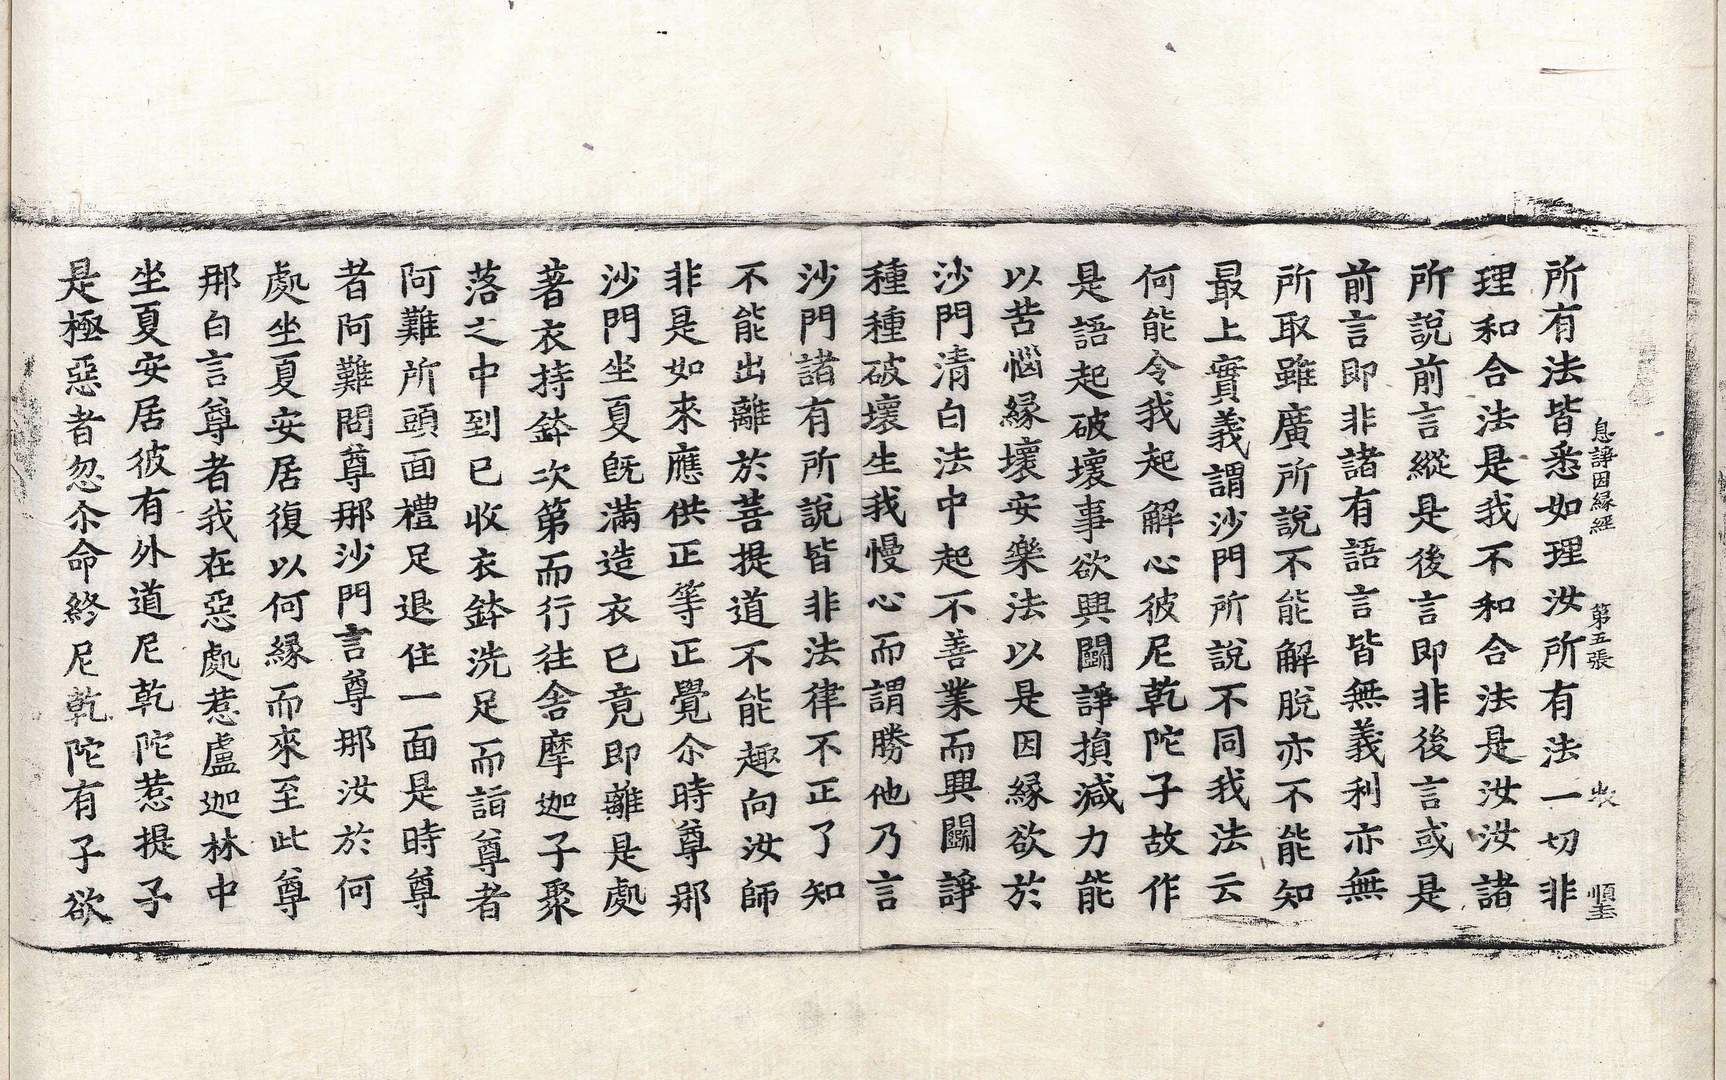 息諍因緣經 第五張 順
所有法皆悉如理汝所有法一切非
理和合法是我不和合法是汝汝諸
所說前言縱是後言即非後言或是
前言即非諸有語言皆無義利亦無
所取雖廣所說不能解脫亦不能知
最上實義謂沙門所說不同我法云
何能令我起解心彼尼乾陀子故作
是語起破壞事欲興鬭諍損減力能
以苦惱緣壞安樂法以是因緣欲於
沙門清白法中起不善業而興鬭諍
種種破壞生我慢心而謂勝他乃言
沙門諸有所說皆非法律不正了知
不能出離於菩提道不能趣向汝師
非是如來應供正等正覺尒時尊那
沙門坐夏旣滿造衣已竟即離是處
著衣持鉢次第而行往舍摩迦子聚
落之中到已收衣鉢洗足而詣尊者
阿難所頭面禮足退住一面是時尊
者阿難問尊那沙門言尊那汝於何
處坐夏安居復以何緣而來至此尊
那白言尊者我在惡處惹盧迦林中
坐夏安居彼有外道尼乾陀惹提子
是極惡者忽尒命終尼乾陀有子欲